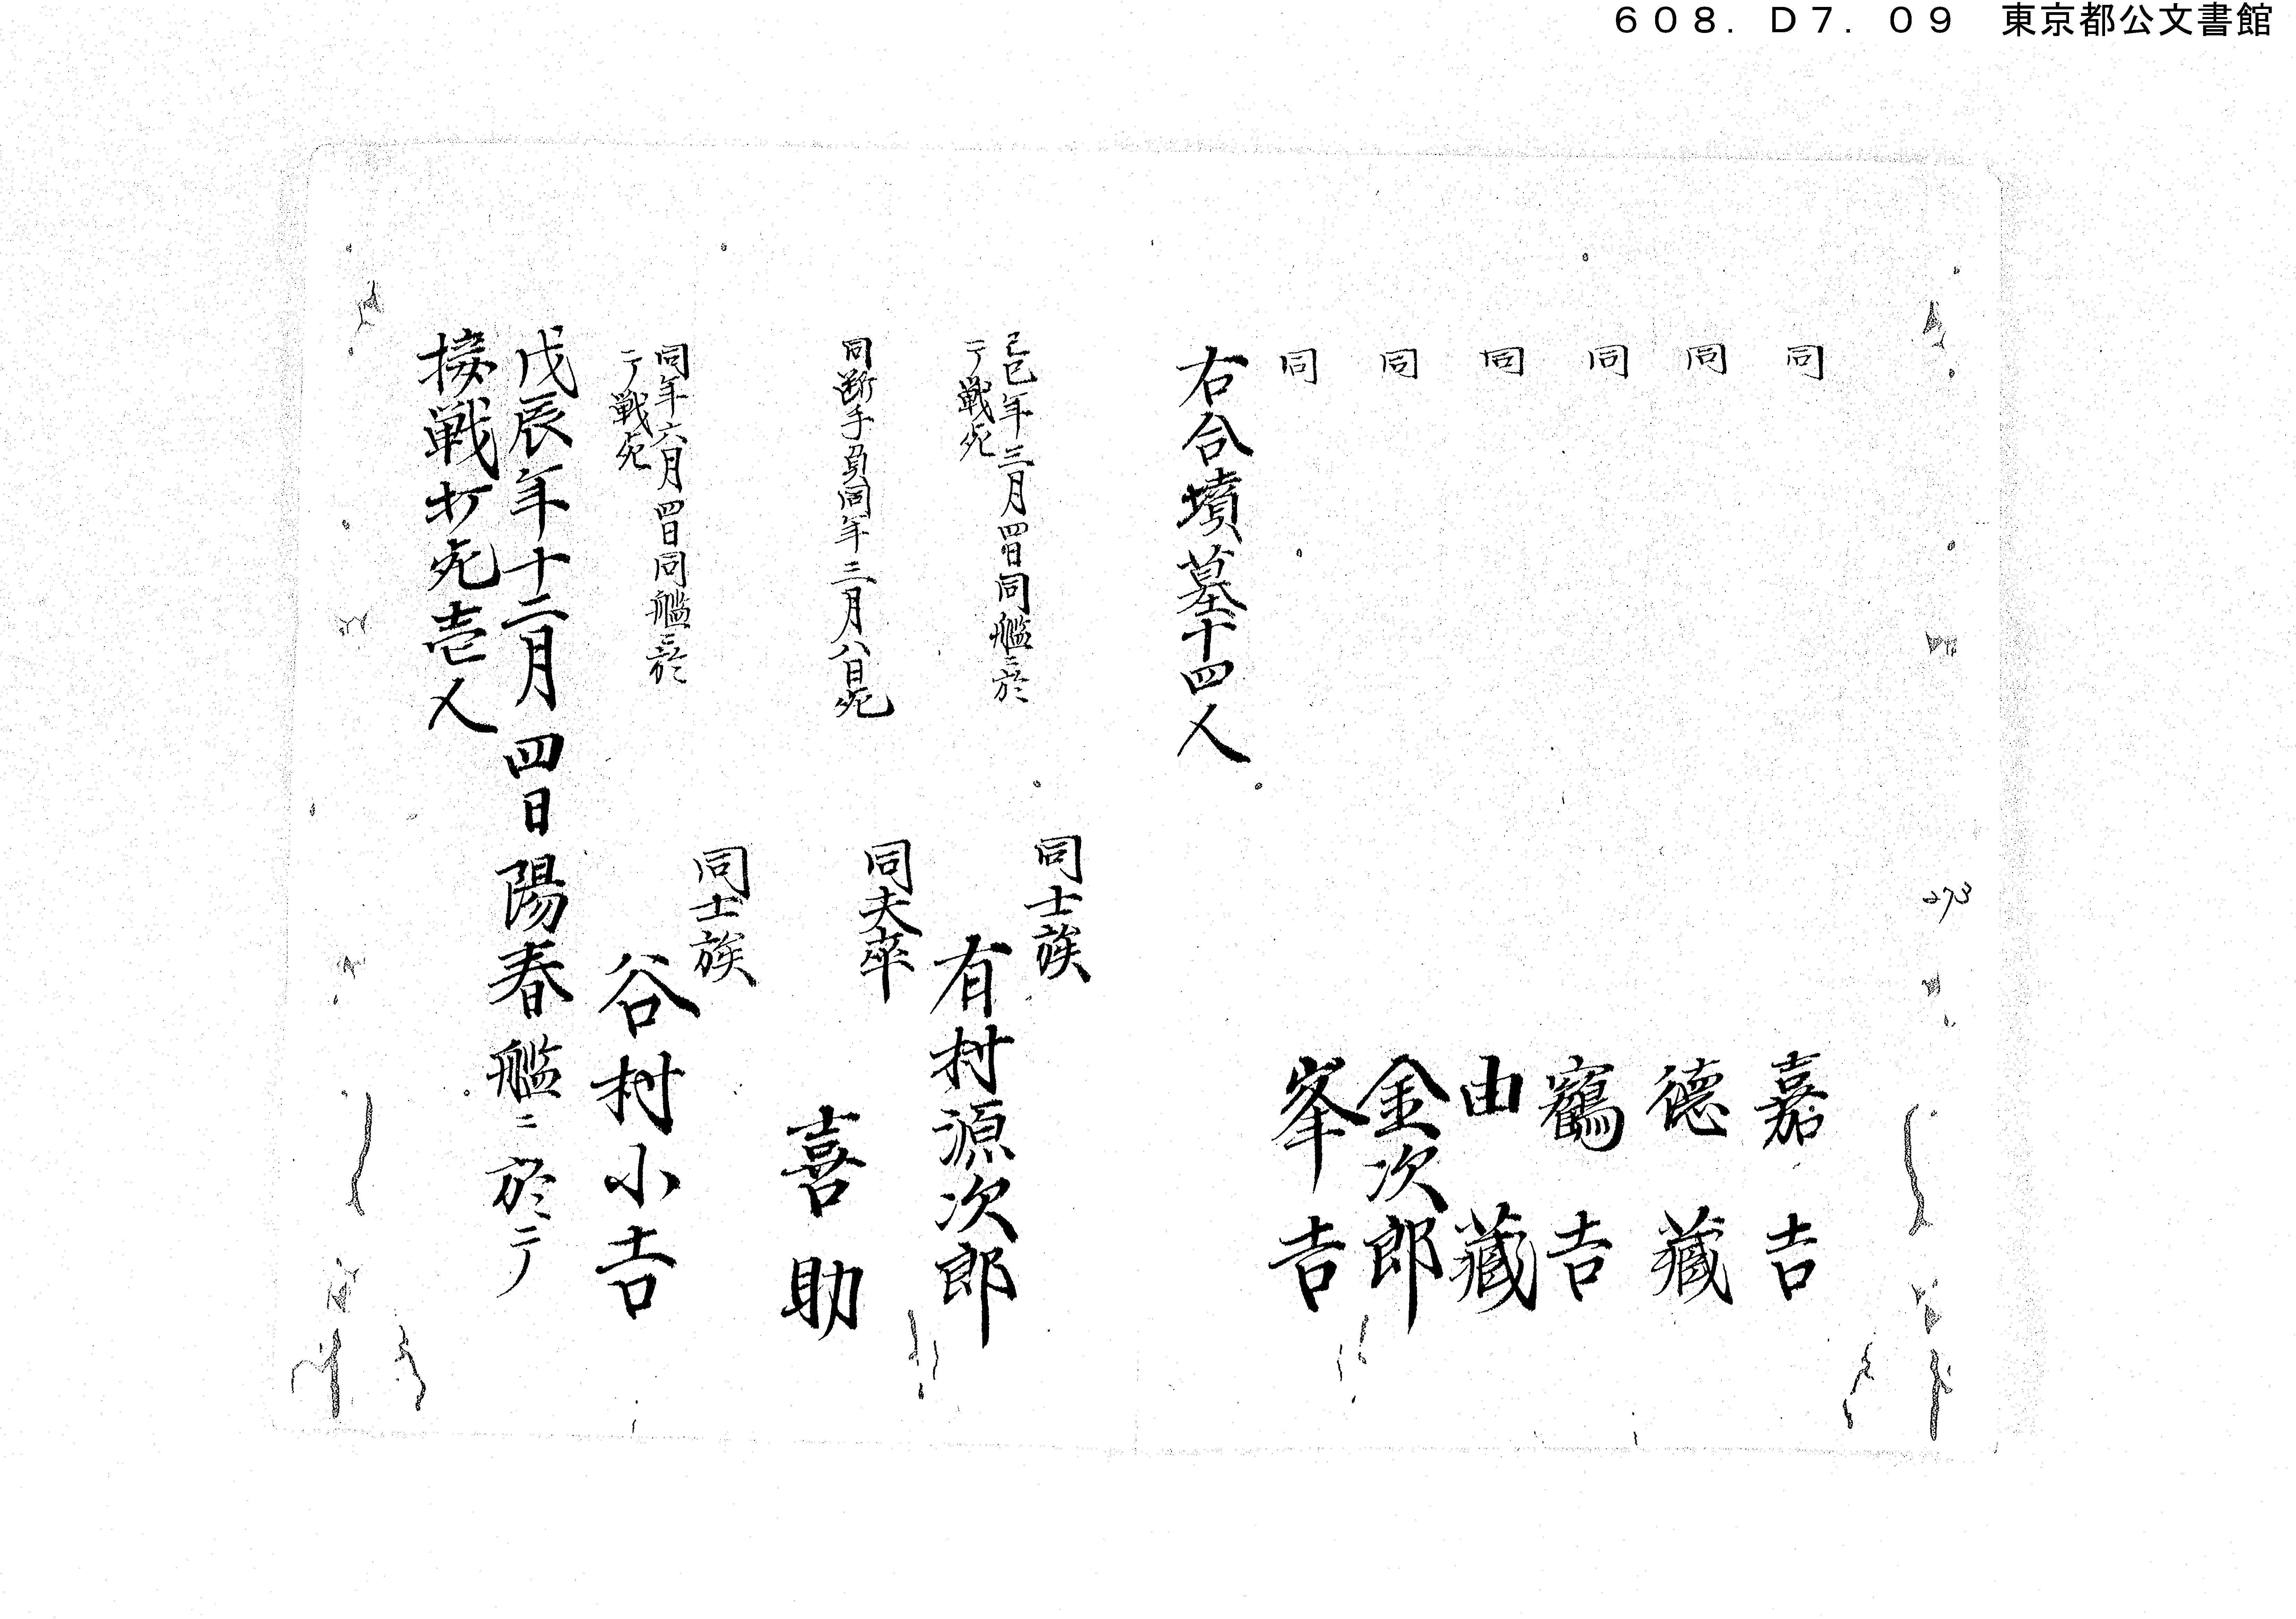 608. D7. 09 東京都公文書館
同 嘉吉
同 徳藏
同 鶴吉
同 由藏
同 金次郎
同 峯吉
右合墳墓十四人
同士族
己巳年三月四日同艦ニ於
テ戦死
有村源次郎
同夫卒
同断手負同年三月八日死
喜助
同士族
同年六月四日同艦ニ於
テ戦死
谷村小吉
戊辰年十二月四日陽春艦ニ於テ
接戦打死壱人
273